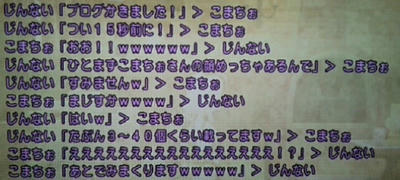 じんない「ブログかきました!」> こまちぉ
じんない「つい15秒前に!」> こまちぉ
こまちぉ「おお!!wwwwww」> じんない
じんない「ひとまずこまちぉさんの顔めっちゃあるんで」> こまちぉ
じんない「すみませんw」> こまちぉ
こまちぉ「まじすかwwww」> じんない
じんない「はいw」> こまちぉ
じんない「たぶん3~40個くらい載ってますw」> こまちぉ
こまちぉ「えええええええええええええええええ!?」> じんない
こまちぉ「あとでみまくりますwwwww」> じんない